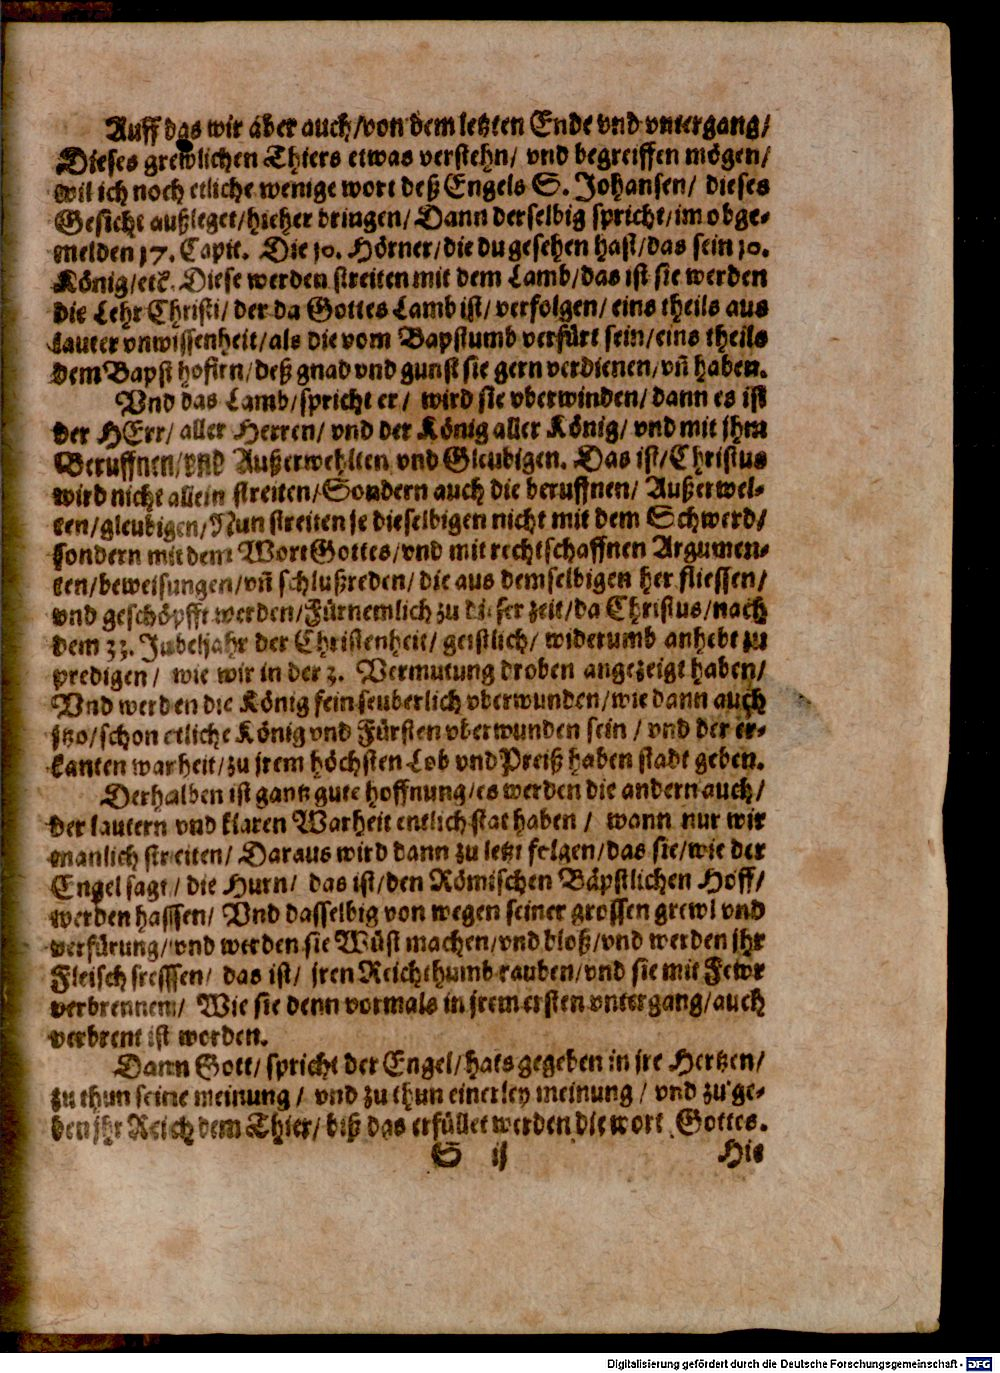 Auff das wir aber auch/von dem letzten Ende vnd vntergang/
Dieses grewlichen Thiers etwas verstehn/ vnd begreiffen mögen/
wil ich noch etliche wenige wort deß Engels S. Johansen/ dieses
Gesicht außleget/hieher bringen/ Dann derselbig spricht/im obge-
melden 17. Capit. Die 10. Hörner/die du gesehen hast/das sein 10.
König/etc̃. Diese werden streiten mit dem Lamb/das ist sie werden
die Lehr Christi/ der da Gottes Lamb ist/ verfolgen/ eins theils aus
lauter vnwissenheit/als die vom Bapstumb verfürt sein/eins theils
dem Bapst hofirn/deß gnad vnd gunst sie gern verdienen/vñ haben.
Vnd das Lamb/spricht er/ wird sie vberwinden/dann es ist
der HErr/ aller Herren/ vnd der König aller König/ vnd mit jhm
Beruffnen/vnd Außerwehlten vnd Gleubigen. Das ist/Christus
wird nicht allein streiten/Sondern auch die beruffnen/ Außerwel-
ten/gleubigen/Nun streiten je dieselbigen nicht mit dem Schwerd/
sondern mit dem Wort Gottes/vnd mit rechtschaffnen Argumen-
ten/beweisungen/vñ schlußreden/die aus demselbigen her fliessen/
vnd geschöpfft werden/Fürnemlich zu dieser zeit/da Christus/nach
dem 33. Jubeljahr der Christenheit/ geistlich/ widerumb anhebt zu
predigen/ wie wir in der 3. Vermutung droben angezeigt haben/
Vnd werden die König fein seuberlich vberwunden/wie dann auch
jtzo/schon etliche König vnd Fürsten vberwunden sein / vnd der er-
kanten warheit/zu jrem höchsten Lob vnd Preiß haben stadt geben.
Derhalben ist gantz gute hoffnung/es werden die andern auch/
der lautern vnd klaren Warheit entlich stat haben / wann nur wir
manlich streiten/ Daraus wird dann zu letzt folgen/das sie/wie der
Engel sagt / die Hurn/ das ist/den Römischen Bäpstlichen Hoff/
werden hasssen/ Vnd dasselbig von wegen seiner grossen grewl vnd
verfürung/ vnd werden sie Wüst machen/vnd bloß/vnd werden jhr
Fleisch fresssen/ das ist/ jren Reichthumb rauben/vnd sie mit Fewr
verbrennen/ Wie sie denn vormals in jrem ersten vntergang/auch
verbrent ist worden.
Dann Gott/ spricht der Engel/hats gegeben in jre Hertzen/
zu thun seine meinung / vnd zu thun einerley meinung / vnd zu ge-
ben jhr Reich dem Thier/ biß das erfüllet werden die wort Gottes.
S ij Hie
Digitalisierung gefördert durch die Deutsche Forschungsgemeinschaft - DFG